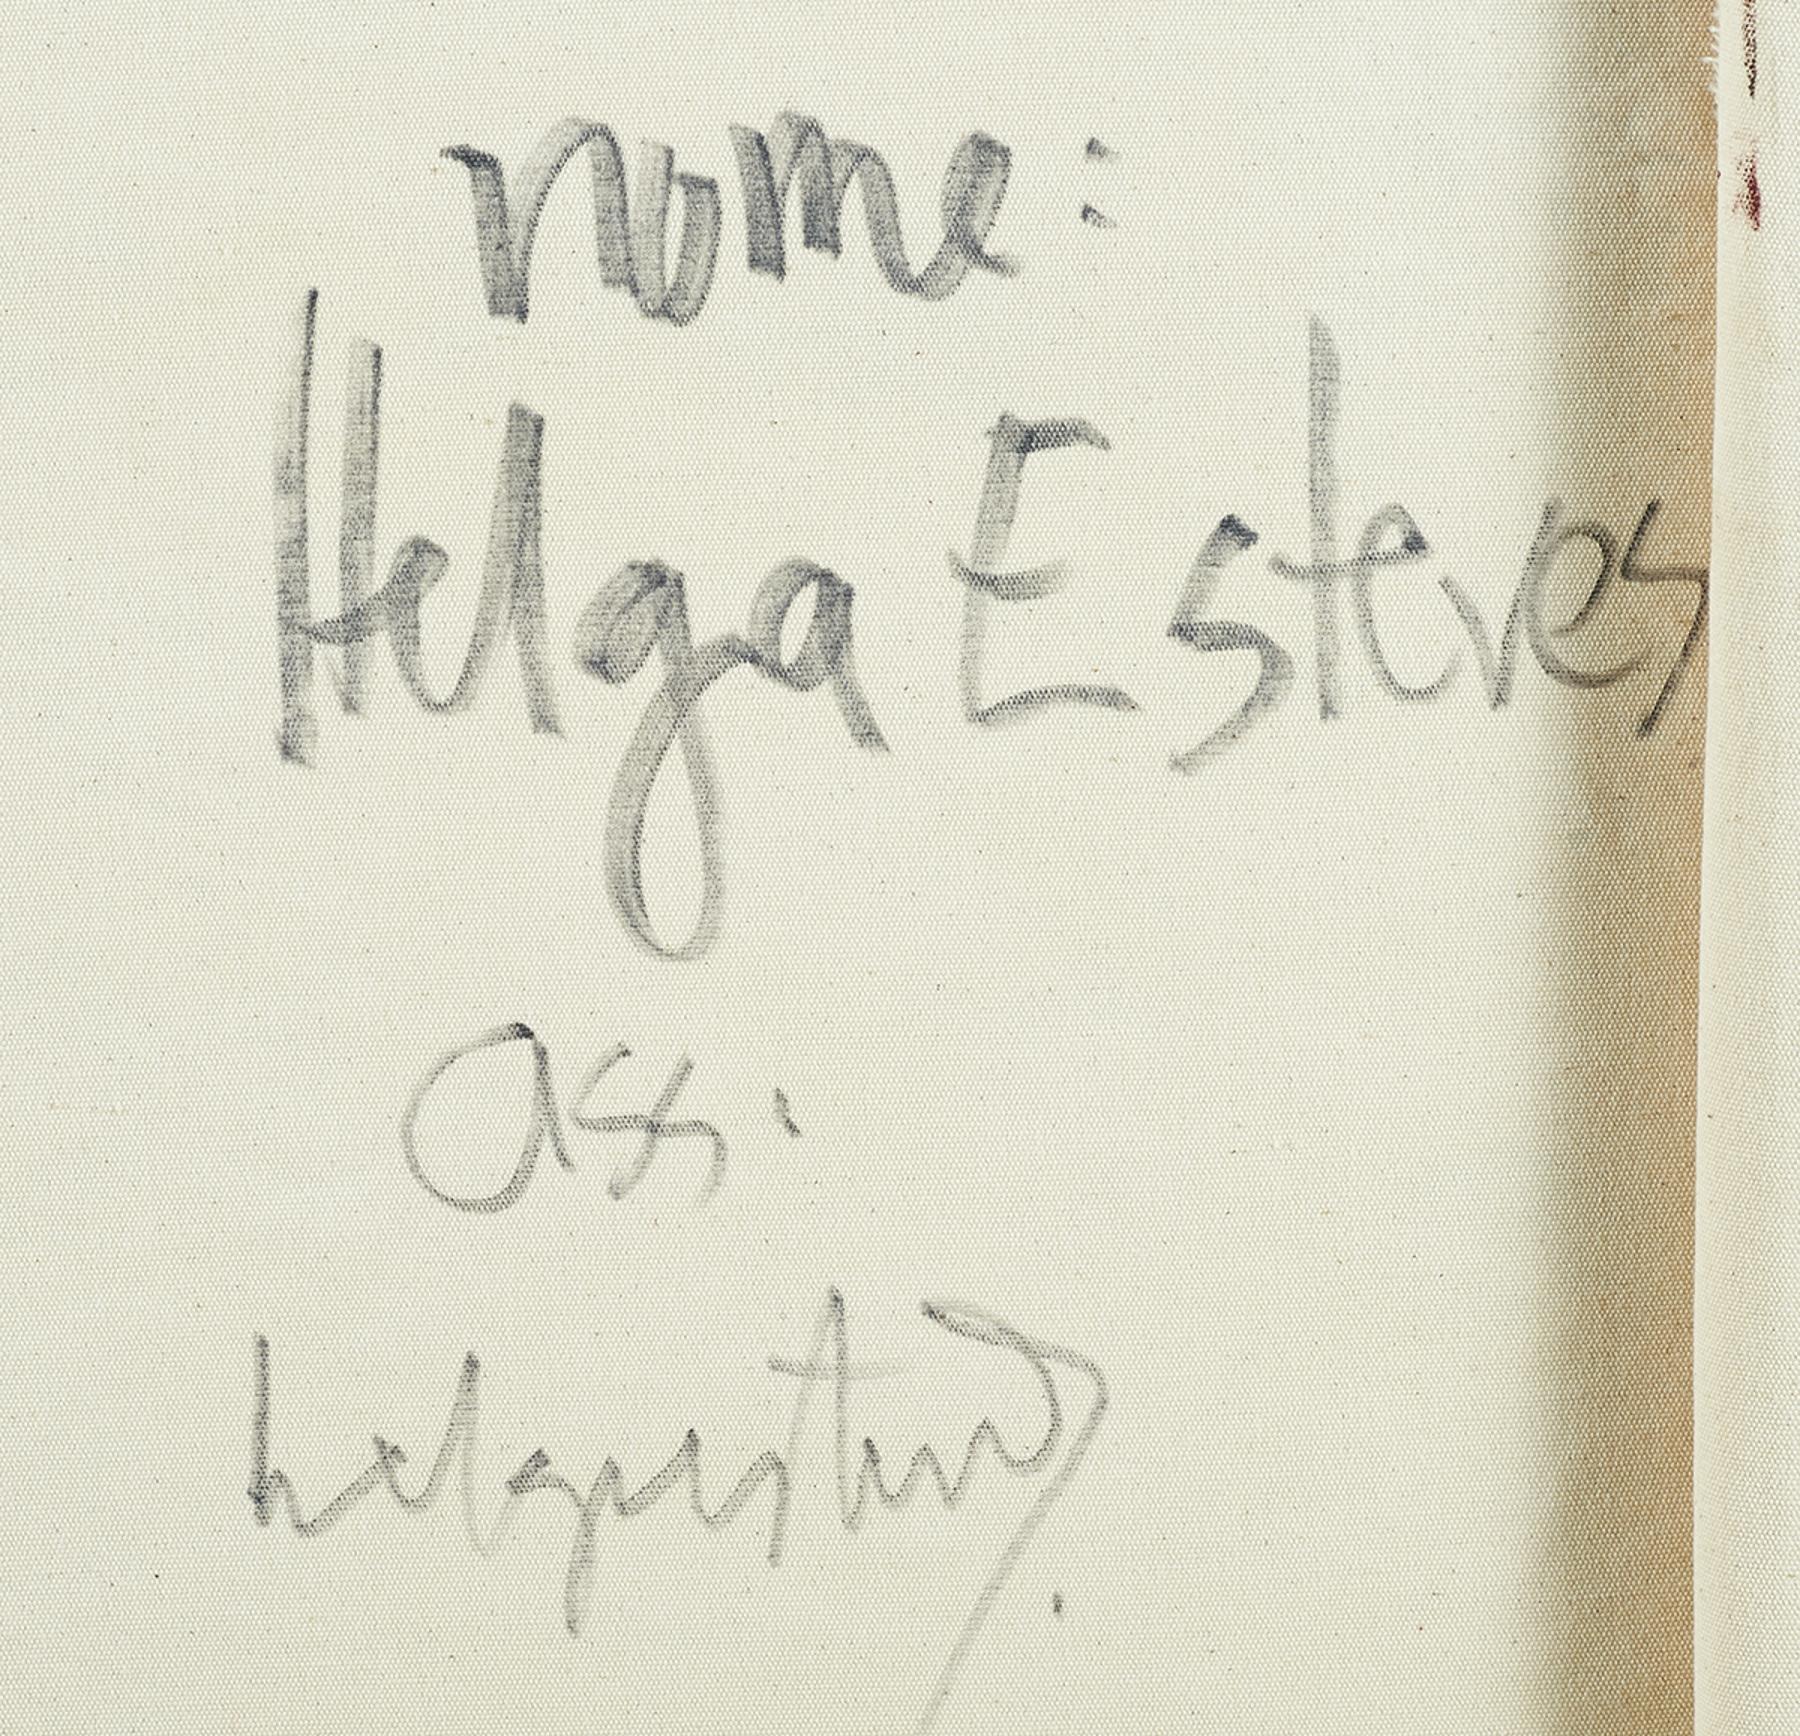 nome:
Helga Esteves
ass.
helgaesteves